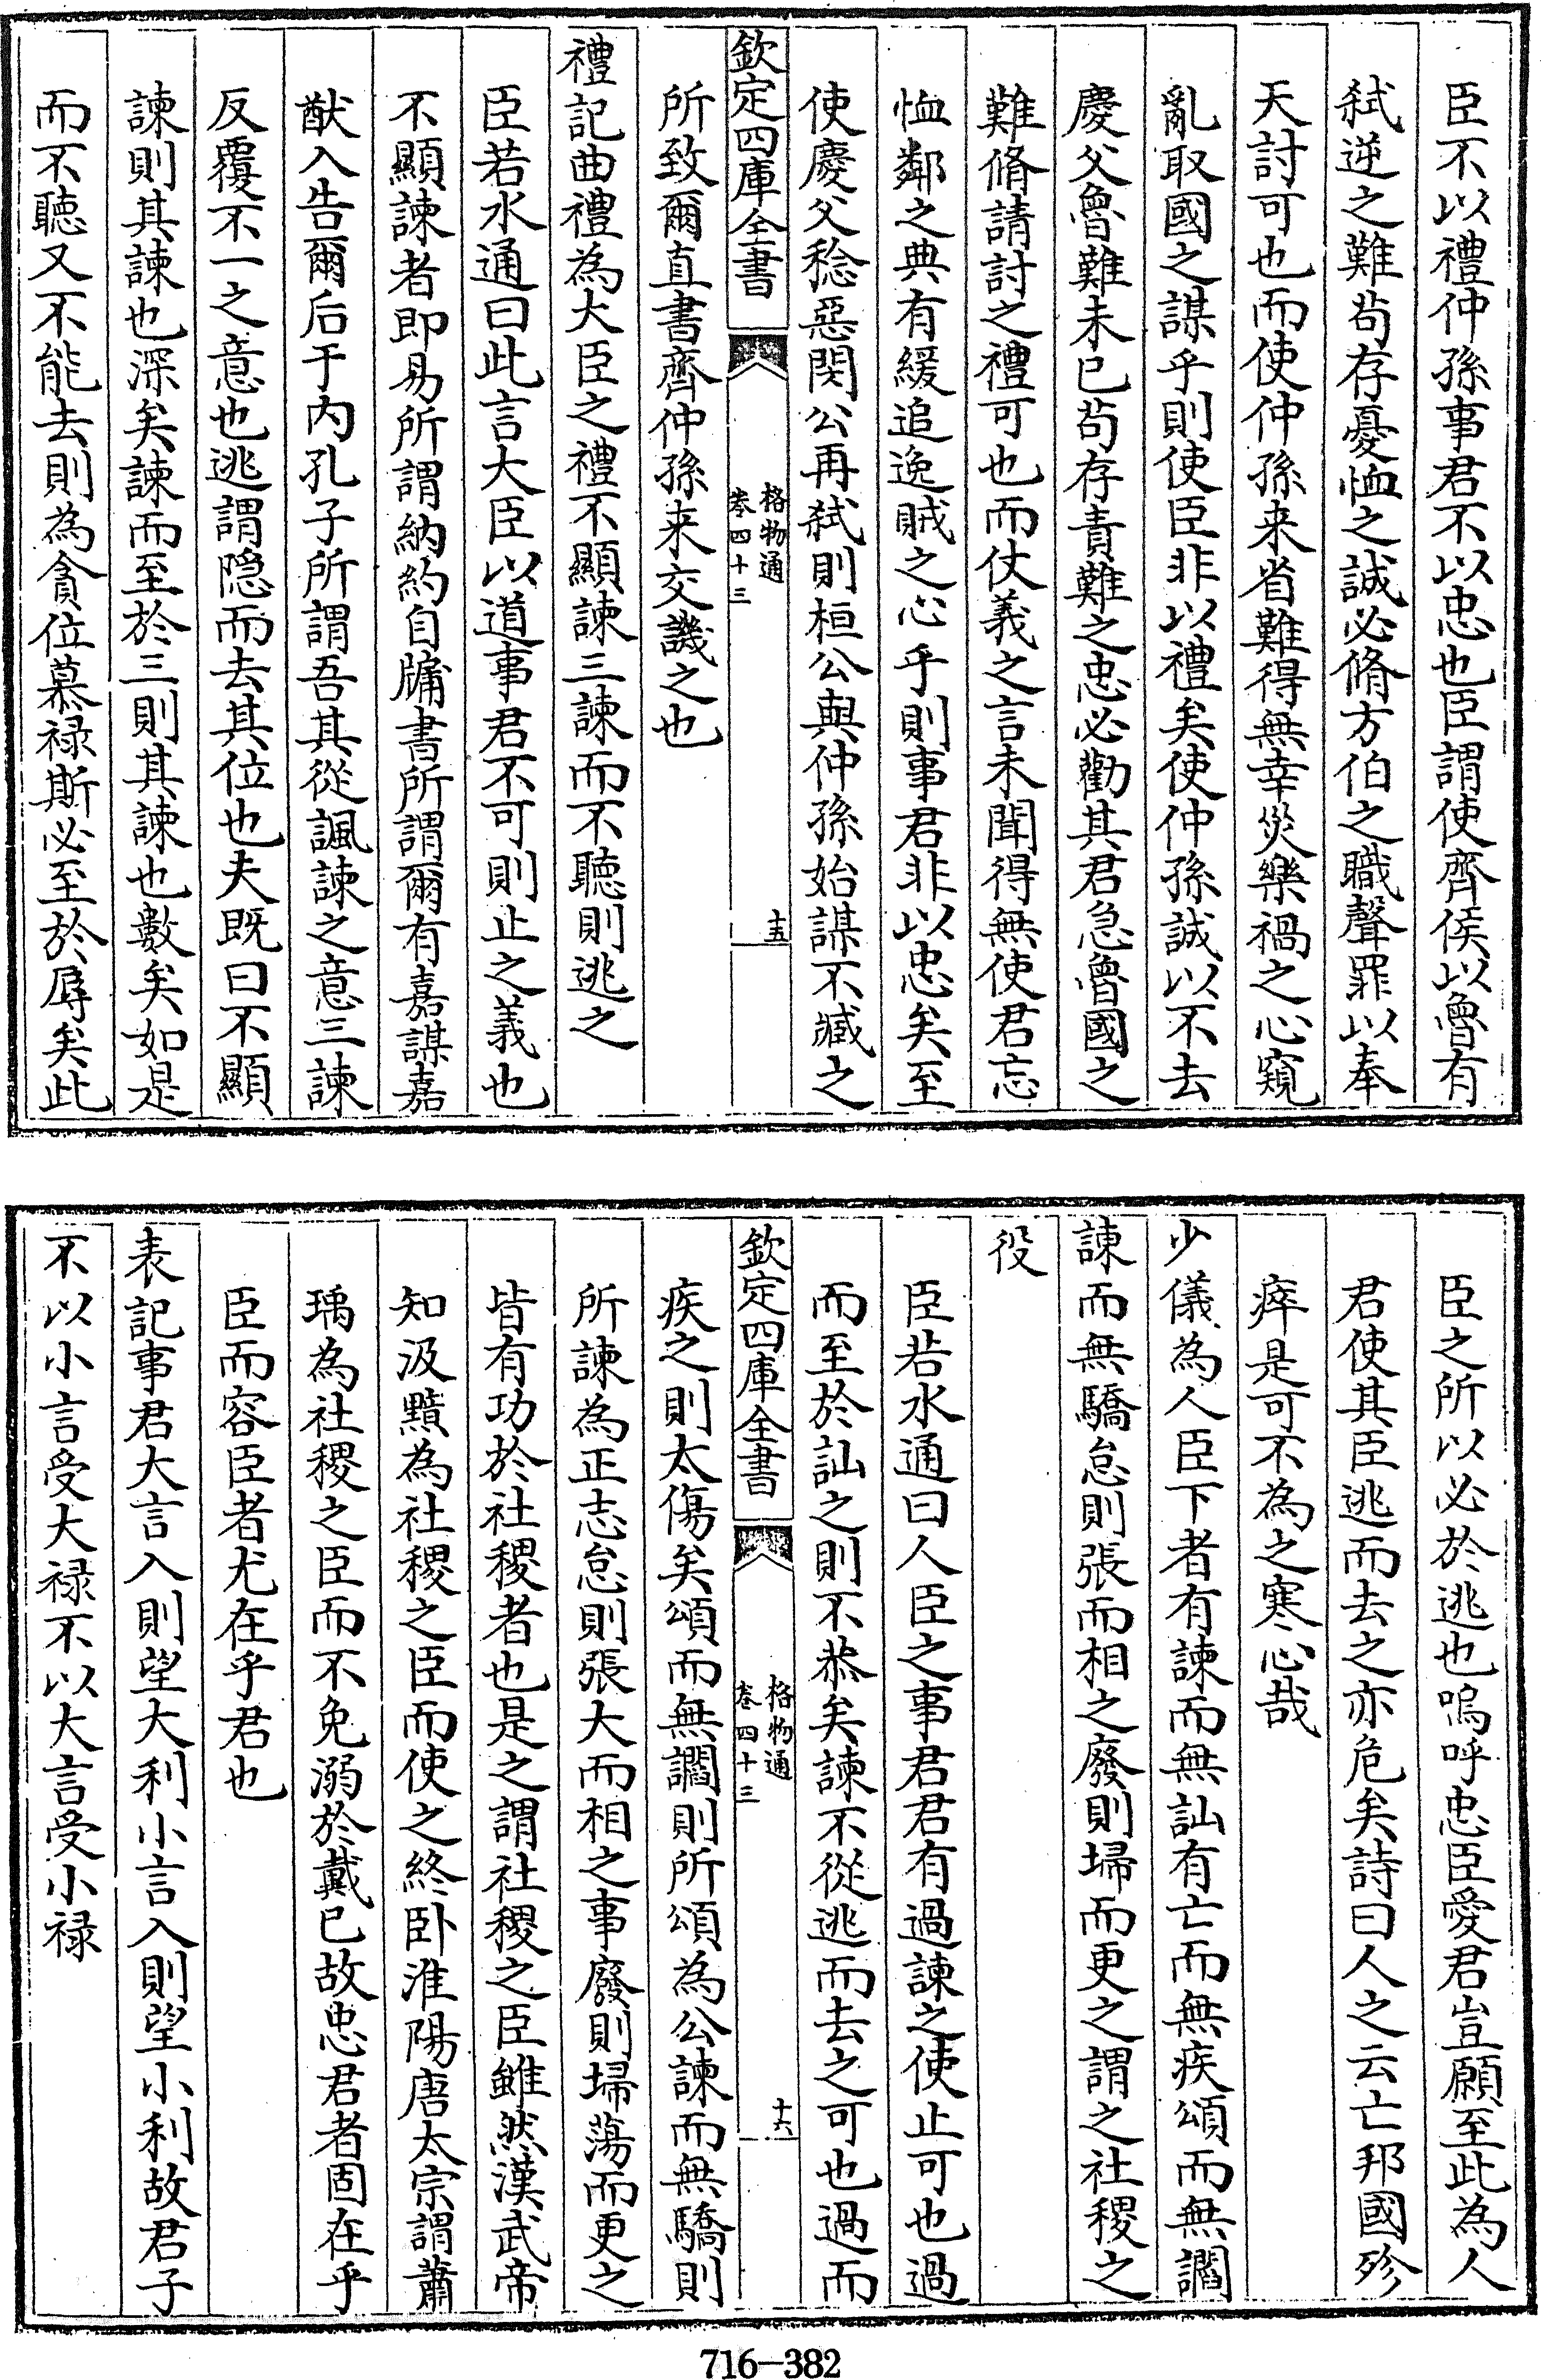 臣不以禮仲孫事君不以忠也臣謂使齊侯以魯有
弑逆之難苟存憂恤之誠必脩方伯之職聲罪以奉
天討可也而使仲孫来省難得無幸災樂禍之心窺
亂取國之謀乎則使臣非以禮矣使仲孫誠以不去
慶父魯難未已苟存責難之忠必勸其君急魯國之
難脩請討之禮可也而仗義之言未聞得無使君忘
恤鄰之典有緩追逸賊之心乎則事君非以忠矣至
使慶父稔惡閔公再弑則桓公與仲孫始謀不臧之
欽定四庫全書
格物通
卷四十三
十五
所致爾直書齊仲孫来交譏之也
禮記曲禮為大臣之禮不顯諫三諫而不聽則逃之
臣若水通曰此言大臣以道事君不可則止之義也
不顯諫者即易所謂納約自牖書所謂爾有嘉謀嘉
猷入告爾后于内孔子所謂吾其從諷諫之意三諫
反覆不一之意也逃謂隠而去其位也夫既曰不顯
諫則其諫也深矣諫而至於三則其諫也數矣如是
而不聽又不能去則為貪位慕禄斯必至於辱矣此
臣之所以必於逃也嗚呼忠臣愛君豈願至此為人
君使其臣逃而去之亦危矣詩曰人之云亡邦國殄
瘁是可不為之寒心哉
少儀為人臣下者有諫而無訕有亡而無疾頌而無讇
諫而無驕怠則張而相之廢則埽而更之謂之社稷之
役
臣若水通曰人臣之事君君有過諫之使止可也過
而至於訕之則不恭矣諫不從逃而去之可也過而
欽定四庫全書
格物通
卷四十三
十六
疾之則太傷矣頌而無讇則所頌為公諫而無驕則
所諫為正志怠則張大而相之事廢則埽蕩而更之
皆有功於社稷者也是之謂社稷之臣雖然漢武帝
知汲黯為社稷之臣而使之終卧淮陽唐太宗謂蕭
瑀為社稷之臣而不免溺於戴已故忠君者固在乎
臣而容臣者尤在乎君也
表記事君大言入則望大利小言入則望小利故君子
不以小言受大禄不以大言受小禄
716-382